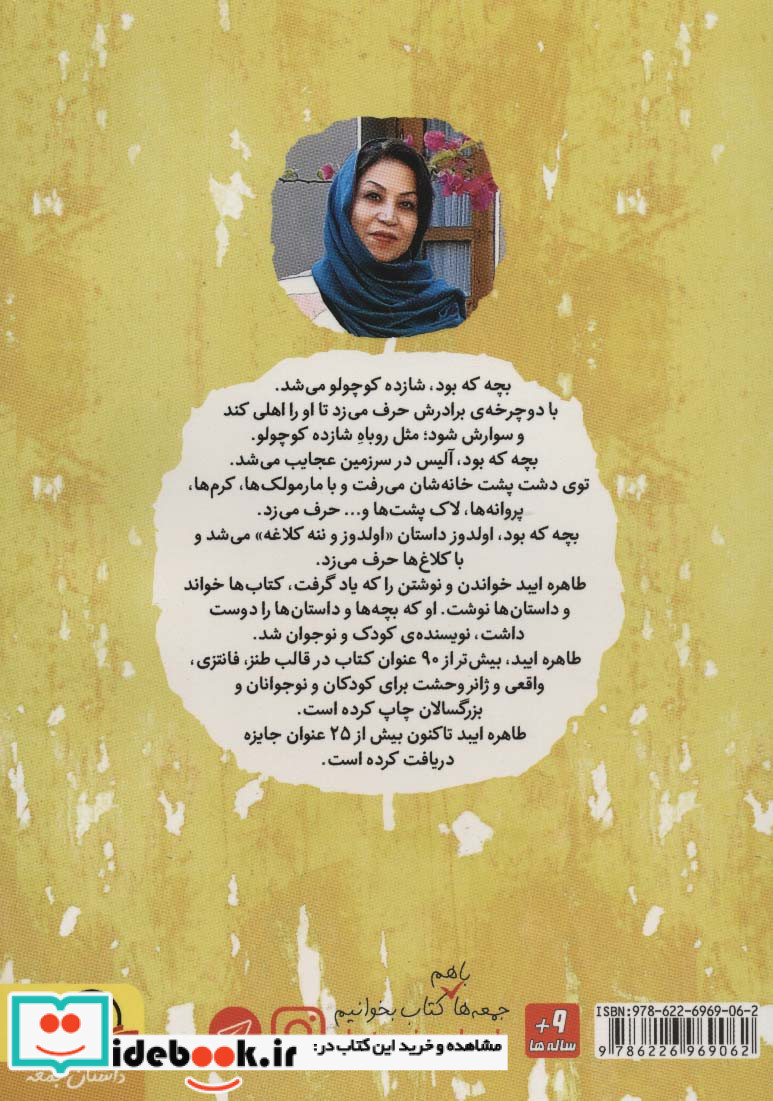 بچه که بود، شازده کوچولو می‌شد.
با دوچرخه‌ی برادرش حرف می‌زد تا او را اهلی کند
و سوارش شود؛ مثل روباهِ شازده کوچولو.
بچه که بود، آلیس در سرزمین عجایب می‌شد.
توی دشت پشت خانه‌شان می‌رفت و با مارمولک‌ها، کرم‌ها،
پروانه‌ها، لاک پشت‌ها و... حرف می‌زد.
بچه که بود، اولدوز داستان «اولدوز و ننه کلاغه» می‌شد و
با کلاغ‌ها حرف می‌زد.
طاهره ایبد خواندن و نوشتن را که یاد گرفت، کتاب‌ها خواند
و داستان‌ها نوشت. او که بچه‌ها و داستان‌ها را دوست
داشت، نویسنده‌ی کودک و نوجوان شد.
طاهره ایبد، بیش‌تر از ۹۰ عنوان کتاب در قالب طنز، فانتزی،
واقعی و ژانر وحشت برای کودکان و نوجوانان و
بزرگسالان چاپ کرده است.
طاهره ایبد تاکنون بیش از ۲۵ عنوان جایزه
دریافت کرده است.
باهم
جمعه‌ها کتاب بخوانیم
+۹
ساله ها
ISBN: 978-622-6969-06-2
9 786226 969062
مشاهده و خرید این کتاب در:
idebook.ir
داستان جمعه